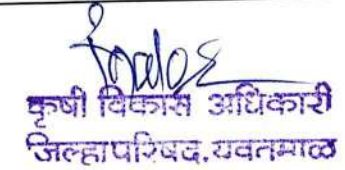 कृषी विकास अधिकारी
जिल्हापरिषद,यवतमाळ